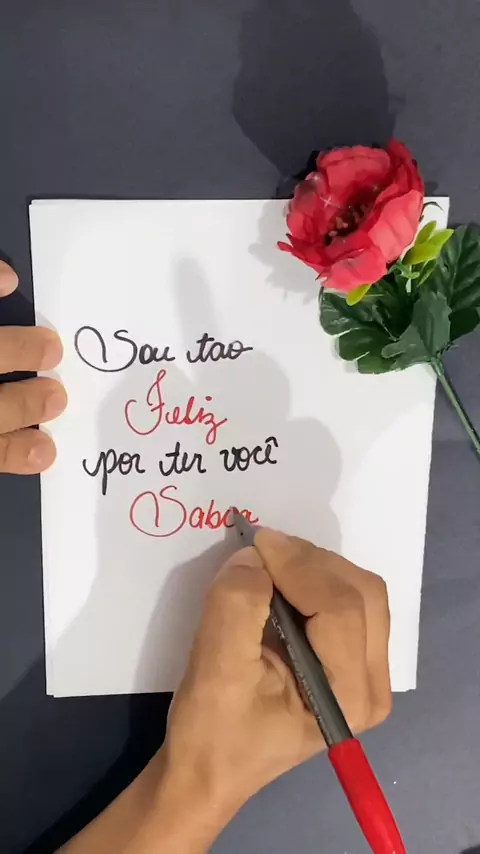 Sou tao
Feliz
por ter você